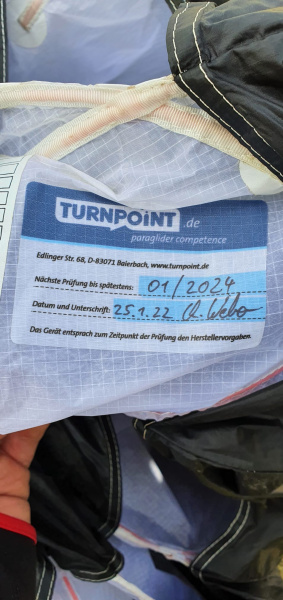 TURNPOINT.de
paraglider competence
Edlinger Str. 68, D-83071 Baierbach, www.turnpoint.de
Nächste Prüfung bis spätestens: 01/2024
Datum und Unterschrift: 25.1.22 Ch. Weber
Das Gerät entsprach zum Zeitpunkt der Prüfung den Herstellervorgaben.